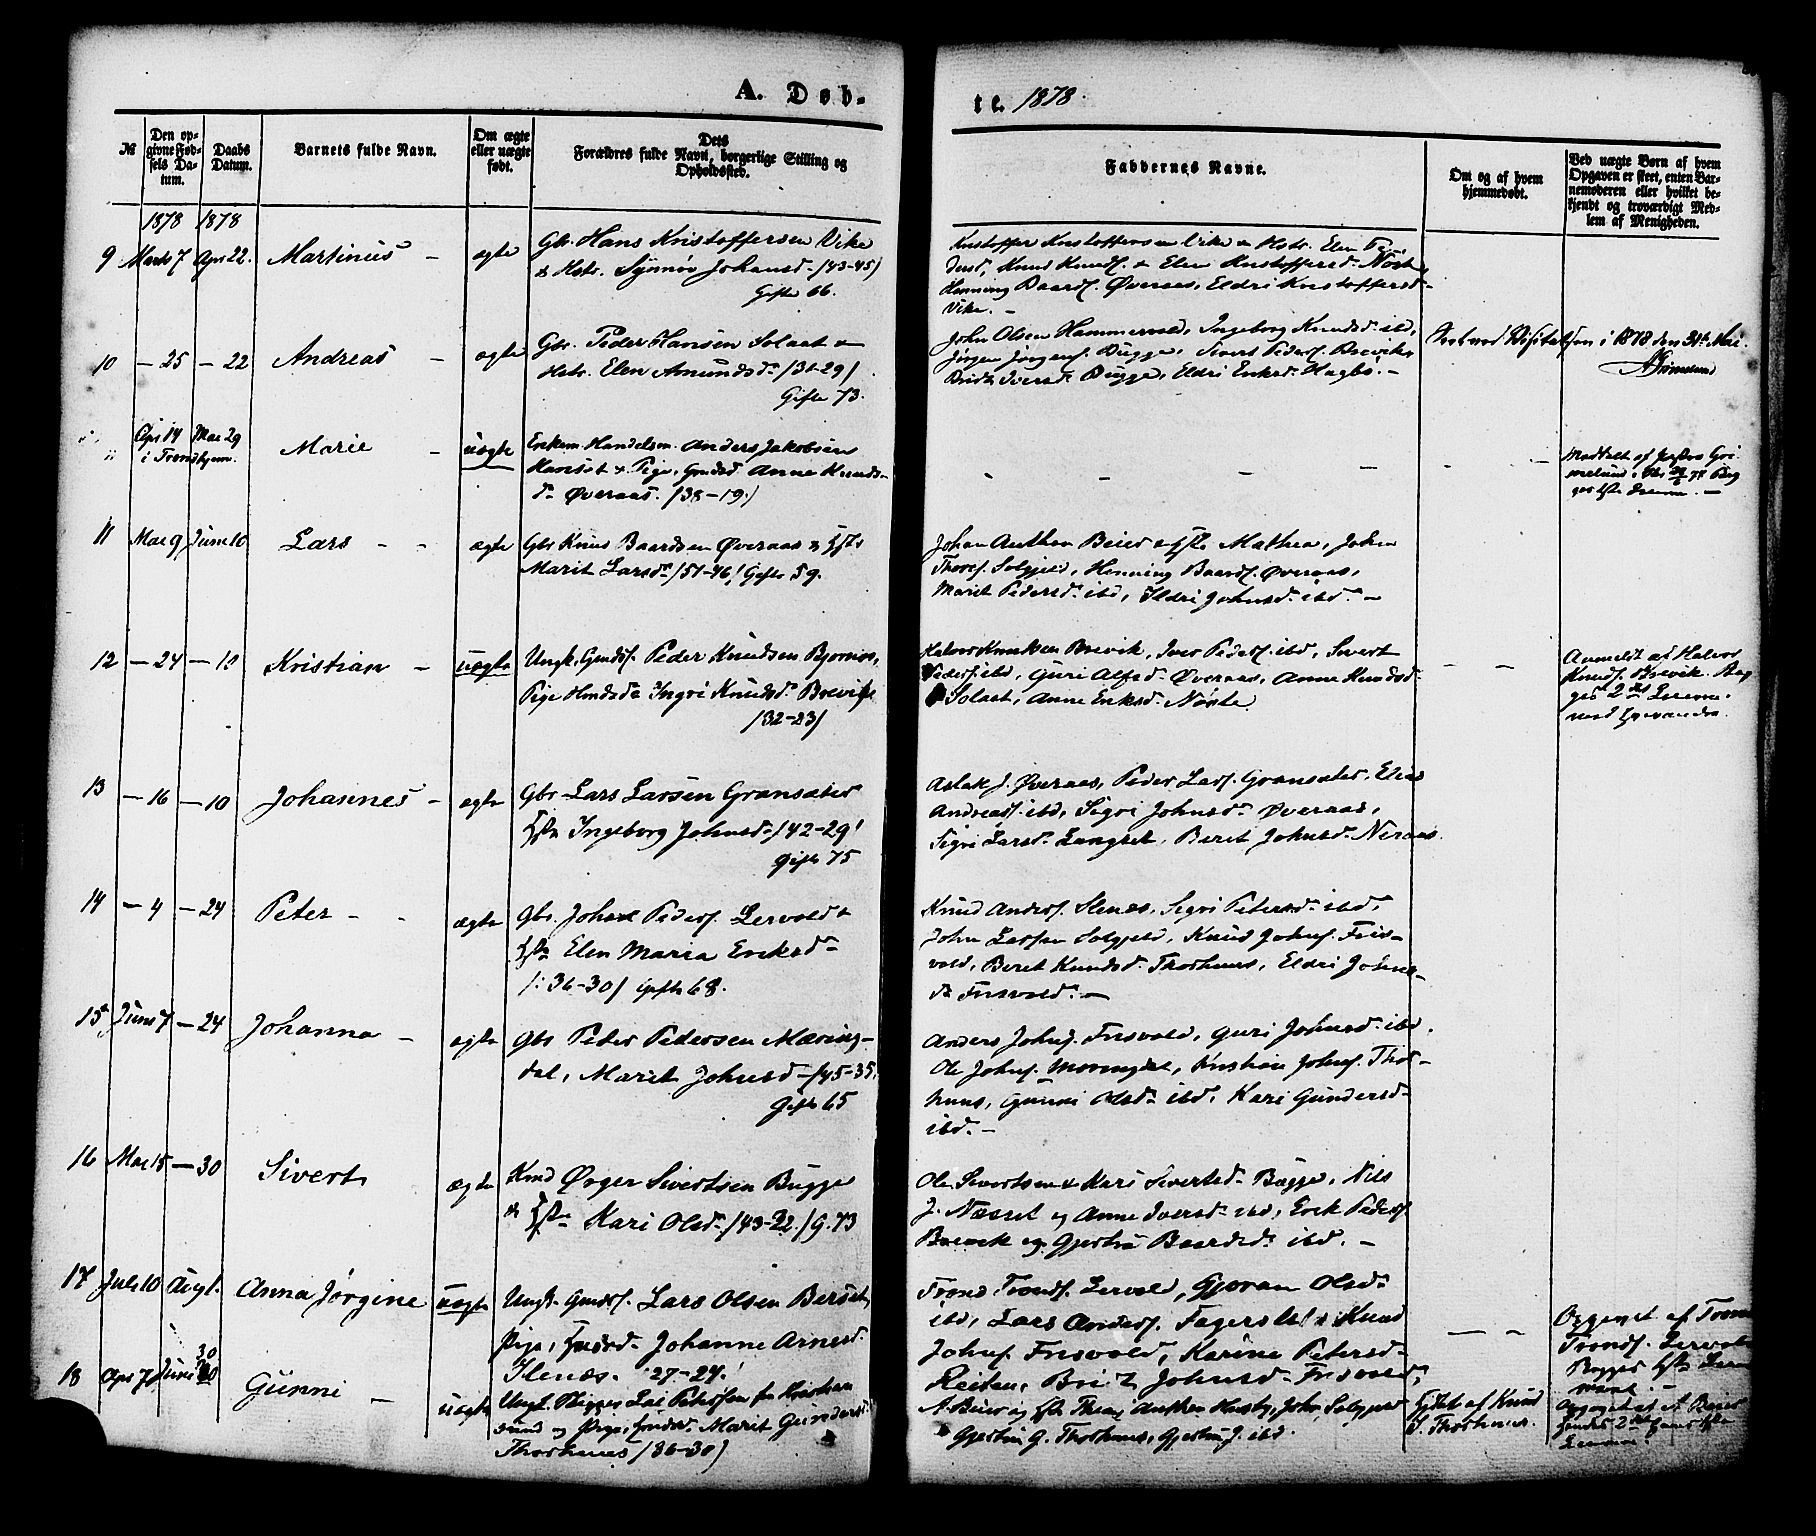 A. Døb-
te. 1878.
№
Den op-
givne Fød-
sels Da-
tum.
Daabs
Datum.
Barnets fulde Navn.
Om ægte
eller uægte
født.
Dets
Forældres fulde Navn, borgerlige Stilling og
Opholdssted.
Faddernes Navne.
Om og af hvem
hjemmedøbt.
Ved uægte Børn af hvem
Opgaven er skeet, enten Bar-
nemoderen eller hvilket be-
kjendt og troværdigt Med-
lem af Menigheden.
1878 1878
9 Marts 7 Apr 22. Martinus - ægte
Gbr. Hans Kristoffersen Vike
& Hstr. Synnøv Johansd. /43-45/
Gifte 66.
Kristoffer Kristoffersen Vike & Hstr. Elen
Knud Knuds. & Elen Kristoffersd. Nøste,
Henning Baards. Øveraas, Eldri Kristoffersd.
Vike. -
10 - 25 - 22 Andreas - ægte
Gbr. Peder Hansen Solaat &
Hstr. Elen Amundsd. /31-29/
Gifte 73.
John Olsen Hammervold, Ingeborg Knudsd. ibd,
Jørgen Jørgens. Bugge, Sivert Peders. Brevik,
Brit Iversd. Bugge, Eldri Eriksd. Hagbø. -
Visitatsen i 1878 den 31te Mai.
Apr 14 Mai 29
i Trondhjem. Marie - uægte
Enkem. Handelsm. Anders Jakobsen
& Pige, Gmdsd. Anne Knuds-
d. Øveraas. /38-19/
Meddelt af
11 Mai 9 Juni 10 Lars - - ægte
Gbr Knud Baardsen Øveraas & Hstr
Marit Larsd. /51-46/ Gifte 59.
Johan Anthon Beier & Hstr Mathea, John
Solgjeld, Henning Baards. Øveraas,
Marit Pedersd. ibd, Eldri Johnsd. ibd. -
12 - 24 - 10 Kristian - uægte
Ungk, Gmdss. Peder Knudsen Bjørnø,
Pige Hmdsd. Ingri Knudsd. Brevik
/32-23/
Halvor Knudsen Brevik, Iver Peders. ibd, Sivert
Peders. ibd, Guri Alfsd. Øveraas, Anne Knudsd.
Solaat, Anne Eriksd. Nøste.
Anmeldt af Halvor
Knuds. Brevik.
13 - 16 - 10 Johannes - ægte
Gbr Lars Larsen Gransæter
Hstr Ingeborg Johnsd. /42-29/
Gifte 75
Aslak J. Øveraas, Peder Lars. Gransæter, Elias
Andreas. ibd, Sigri Johnsd. Øveraas,
Sigri Larsd. Langset, Beret Johnsd. Neraas.
14 - 4 - 24 Peter - - ægte
Gbr. Johan Peders. Lervold &
Hstr Elen Maria Eriksd.
/: 36-30/ Gifte 68.
Knud Anders. Ilenæs, Sigri Petersd. ibd,
John Larsen Solgjeld, Knud Johns. Fris-
vold, Beret Knudsd. Thorhuus, Eldri Johns-
d. Frisvold. -
15 Juni 7 - 24 Johanna - ægte
Gbr Peder Pedersen Mæring-
dal, Marit Johnsd. /45-35,
Gifte 65
Anders Johns. Frisvold, Guri Johnsd. ibd.
Ole Johns. Kristian Johns. Thor-
huus, Gunni Olsd. ibd, Kari Gundersd.
ibd. -
16 Mai 15 - 30 Sivert ægte
Kmd Ørger Sivertsen Bugge
& Hstr Kari Olsd. /43-32./ G. 73
Ole Sivertsen & Kari Sivertsd. Bugge, Nils
J. Næsset og Anne Iversd. ibd, Erik Peders.
Brevik og Gjertrü Baardsd. ibd. -
17 Juli 10 Aug 1. Anna Jørgine uægte
Ungk. Gmdss. Lars Olsen Berset,
Pige, Hmdsd. Johanne Arnesd.
Ilenæs. /27-24/
Trond Tronds. Lervold, Gjøran Olsd.
ibd, Lars Anders. Fagerslet & Knud
Johns. Frisvold, Karine Petersd.
Reiten, Brit Johnsd. Frisvold,
Opgivet af Trond
Tronds. Lervold
18 Apr 7 Juni 30 Gunni - uægte
Ungk. Skipper Lai Petersen fra Kristian
sund og Pige, Hmdsd. Marit Gundersd.
Thorhuus /36-30/
A. Beier og Hstr Thea, Anthon Husby, John Solgjeld
Gjertrü G. Thorhuus, Gjertrü J. ibd.
Hjdbt af Knud
J. Thorhuus.
Opgivet af A Beier